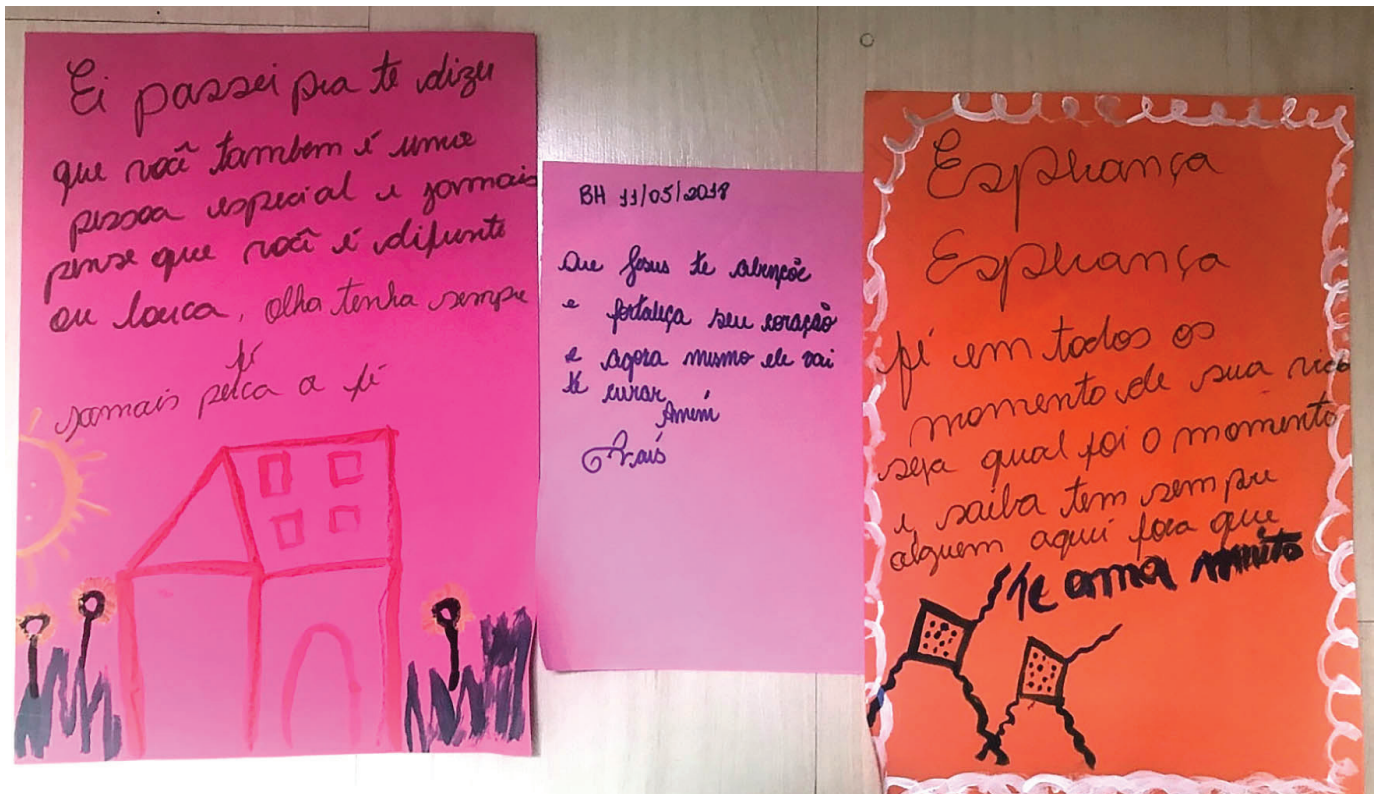 Ei passei pra te dizer
que você tambem é uma
pessoa especial e jamais
pense que você é diferente
ou louca, olha tenha sempre
fé
jamais perca a fé
BH 11/05/2018
Que Jesus te abençõe
e fortaleça seu coração
e agora mesmo ele vai
te curar
Amém
Laís
Esperança
Esperança
fé em todos os
momento de sua vida
seja qual foi o momento
e saiba tem sempre
alguem aqui fora que
te ama muito